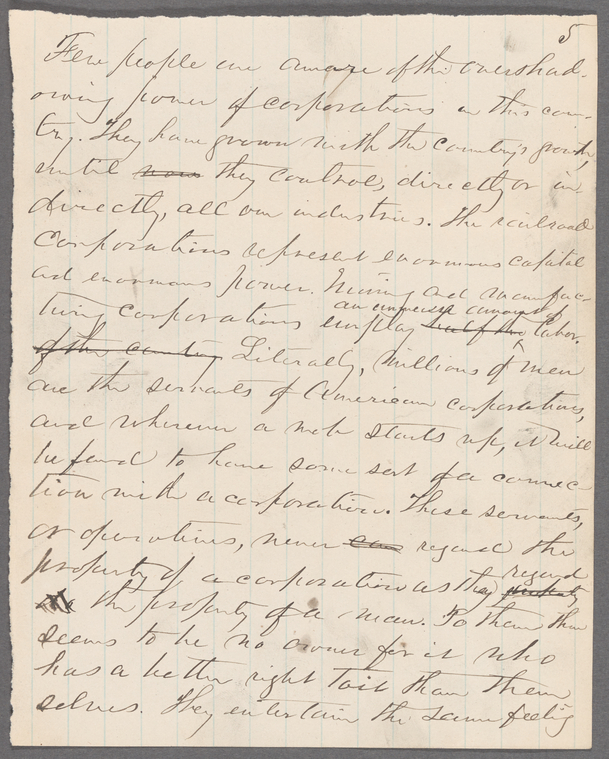 5
Few people are aware of the overshad-
owing power of corporations in this coun-
try. They have grown with the country's growth,
until now they control, directly or in-
directly, all our industries. The railroad
corporations represent enormous capital
and enormous power. Mining and manufac-
an immense amount of
turing corporations employ half of the labor.
of the country. Literally, millions of men
are the servants of American corporations,
and wherever a mob starts up, it will
be found to have some sort of a connec-
tion with a corporation. These servants,
or operatives, never can regard the
regard
property of a corporation as they property
the property of a man. To them there
seems to be no owner for it who
has a better right to it than them-
selves. They entertain the same feeling